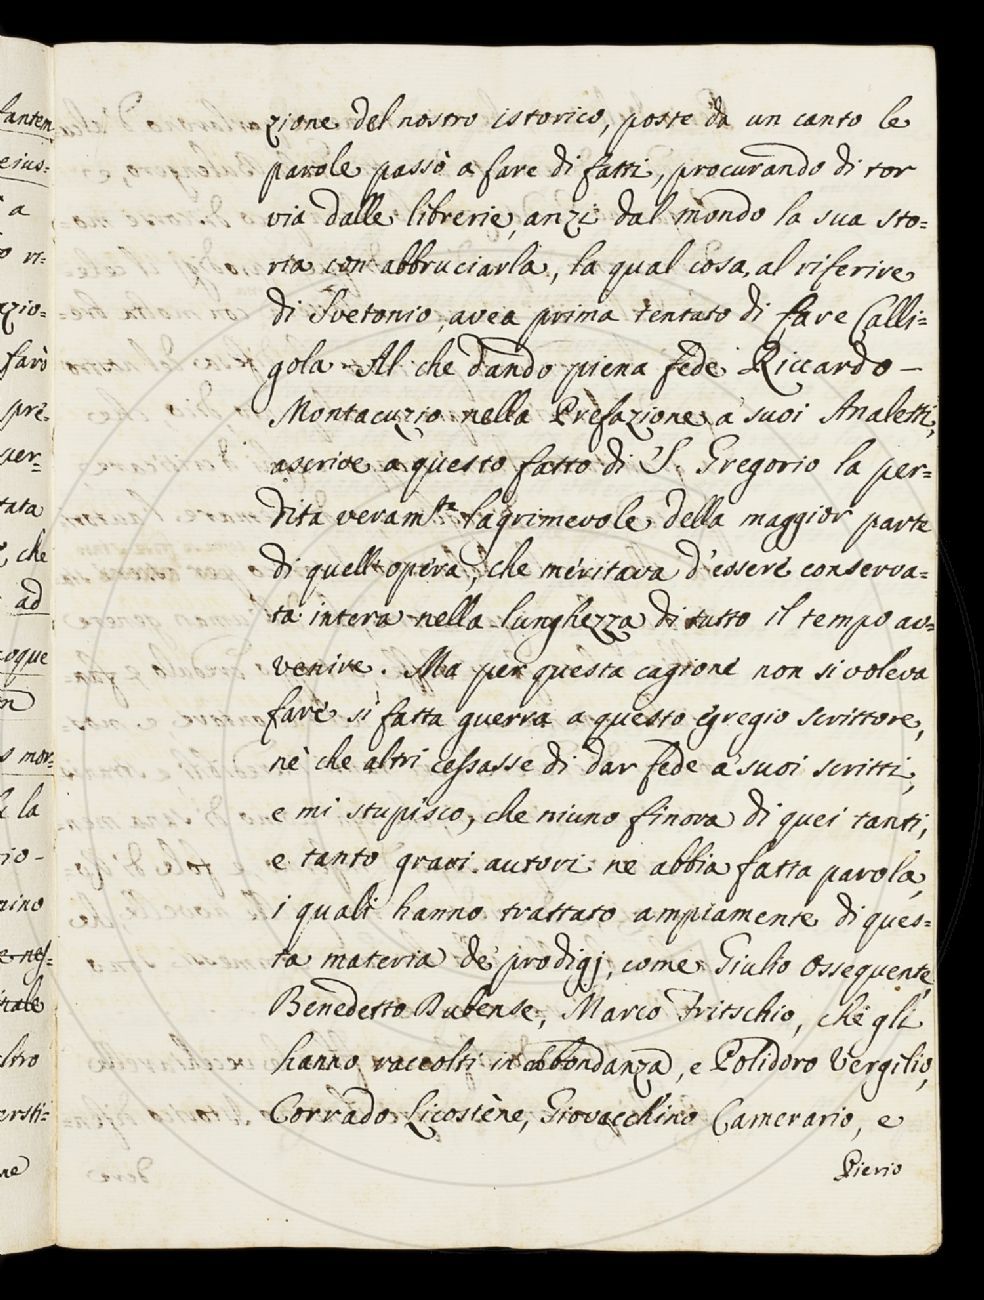 zione del nostro istorico, poste da un canto le
parole passò a fare di fatti, procurando di tor
via dalle librerie, anzi dal mondo la sua sto=
ria con abbruciarla, la qual cosa, al riferire
di Svetonio, avea prima tentato di fare Calli=
gola. Al che dando piena fede Riccardo –
Montacuzio nella Prefazione a' suoi Analetti,
ascrive a questo fatto di S. Gregorio la per=
dita veramte lagrimevole della maggior parte
di quell'opera, che meritava d'essere conserva=
ta intera nella lunghezza di tutto il tempo av=
venire. Ma per questa cagione non si voleva
fare sì fatta guerra a questo egregio scrittore,
nè che altri cessasse di dar fede a' suoi scritti,
e mi stupisco, che niuno finora di quei tanti,
e tanto gravi autori ne abbia fatta parola,
i quali hanno trattato ampiamente di ques=
ta materia de' prodigj, come Giulio Ossequente,
Benedetto Bubense, Marco Fritschio, che gli
hanno raccolti in abbondanza, e Polidoro Vergilio,
Corrado Licostène, Giovacchino Camerario, e
Pierio